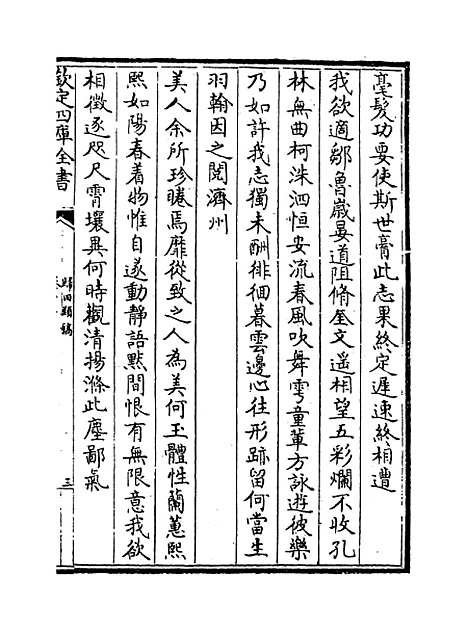 毫髮功要使斯世膏此志果終定遲速終相遭
我欲適鄒魯歲晏道阻脩奎文遥相望五彩爛不收孔
林無曲柯洙泗恒安流春風吹舞雩童輩方詠遊彼樂
乃如許我志獨未酬徘徊暮雲邊心往形跡留何當生
羽翰因之閱濟州
美人余所珍睠焉靡從致之人為美何玉體性蘭蕙熙
熙如陽春着物惟自遂動静語黙間恨有無限意我欲
相徵逐咫尺霄壤異何時觀清揚滌此塵鄙氣
欽定四庫全書
歸田類稿
三